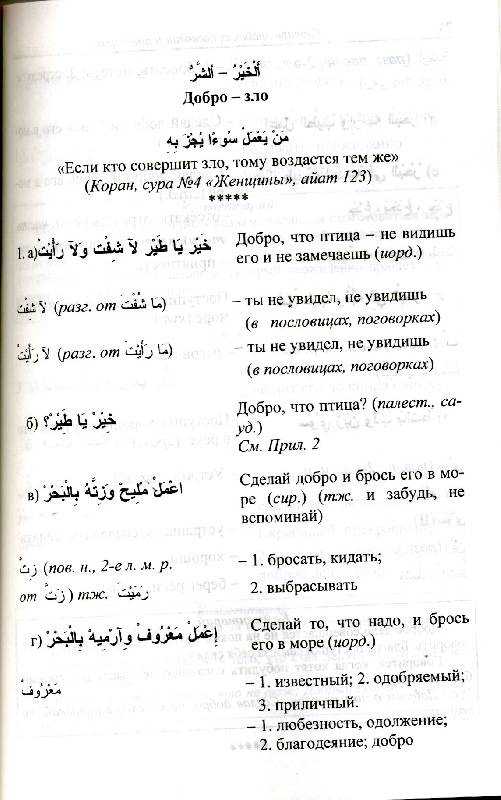 اَلْخَيْرُ – اَلشَّرُّ
Добро – зло
مَنْ يَعْمَلْ سُوءًا يُجْزَ بِهِ
«Если кто совершит зло, тому воздастся тем же»
(Коран, сура №4 «Женщины», айат 123)
*****
1. а) خَيْر يَا طَيْر لاَ شِفْت وَلاَ رَأَيْتْ
Добро, что птица – не видишь
его и не замечаешь (иорд.)
لاَ شِفْت (разг. от مَا شُفْتَ)
– ты не увидел, не увидишь
(в пословицах, поговорках)
لاَ رَأَيْتْ (разг. от مَا رَأَيْتَ)
– ты не увидел, не увидишь
(в пословицах, поговорках)
б) خَيْرْ يَا طَيْرْ؟
Добро, что птица? (палест., са-
уд.)
См. Прил. 2
в) اعْمَلْ مْلِيحْ وَزِتُّهْ بِالْبَحْرْ
Сделай добро и брось его в мо-
ре (сир.) (тж. и забудь, не
вспоминай)
زِتّْ (пов. н., 2-е л. м. р.
от زَتَّ) тж. رَمَيْتَ
– 1. бросать, кидать;
2. выбрасывать
г) إِعْمَلْ مَعْرُوفْ وَأرْمِيهْ بِالْبَحْرْ
Сделай то, что надо, и брось
его в море (иорд.)
مَعْرُوفْ
– 1. известный; 2. одобряемый;
3. приличный.
– 1. любезность, одолжение;
2. благодеяние; добро